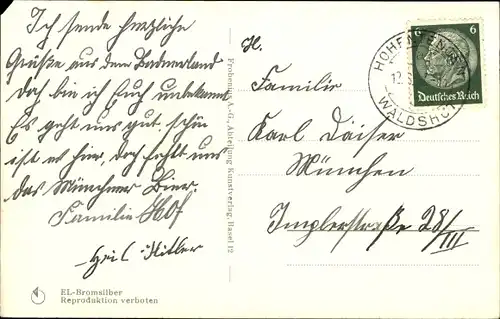 Ich sende herzliche
Grüße aus dem Badnerland
doch bin ich Euch unbekannt
Es geht uns gut. schön
ist es hier, doch fehlt uns
das Münchner Bier.
Familie Hof
Heil Hitler
EL-Bromsilber
Reproduktion verboten
Frobenius A.-G., Abteilung Kunstverlag, Basel 12
H.
Familie
Karl Daiser
München
Implerstraße 28/III
6 6
Deutsches Reich
HOHENTENGEN
12.
WALDSHUT